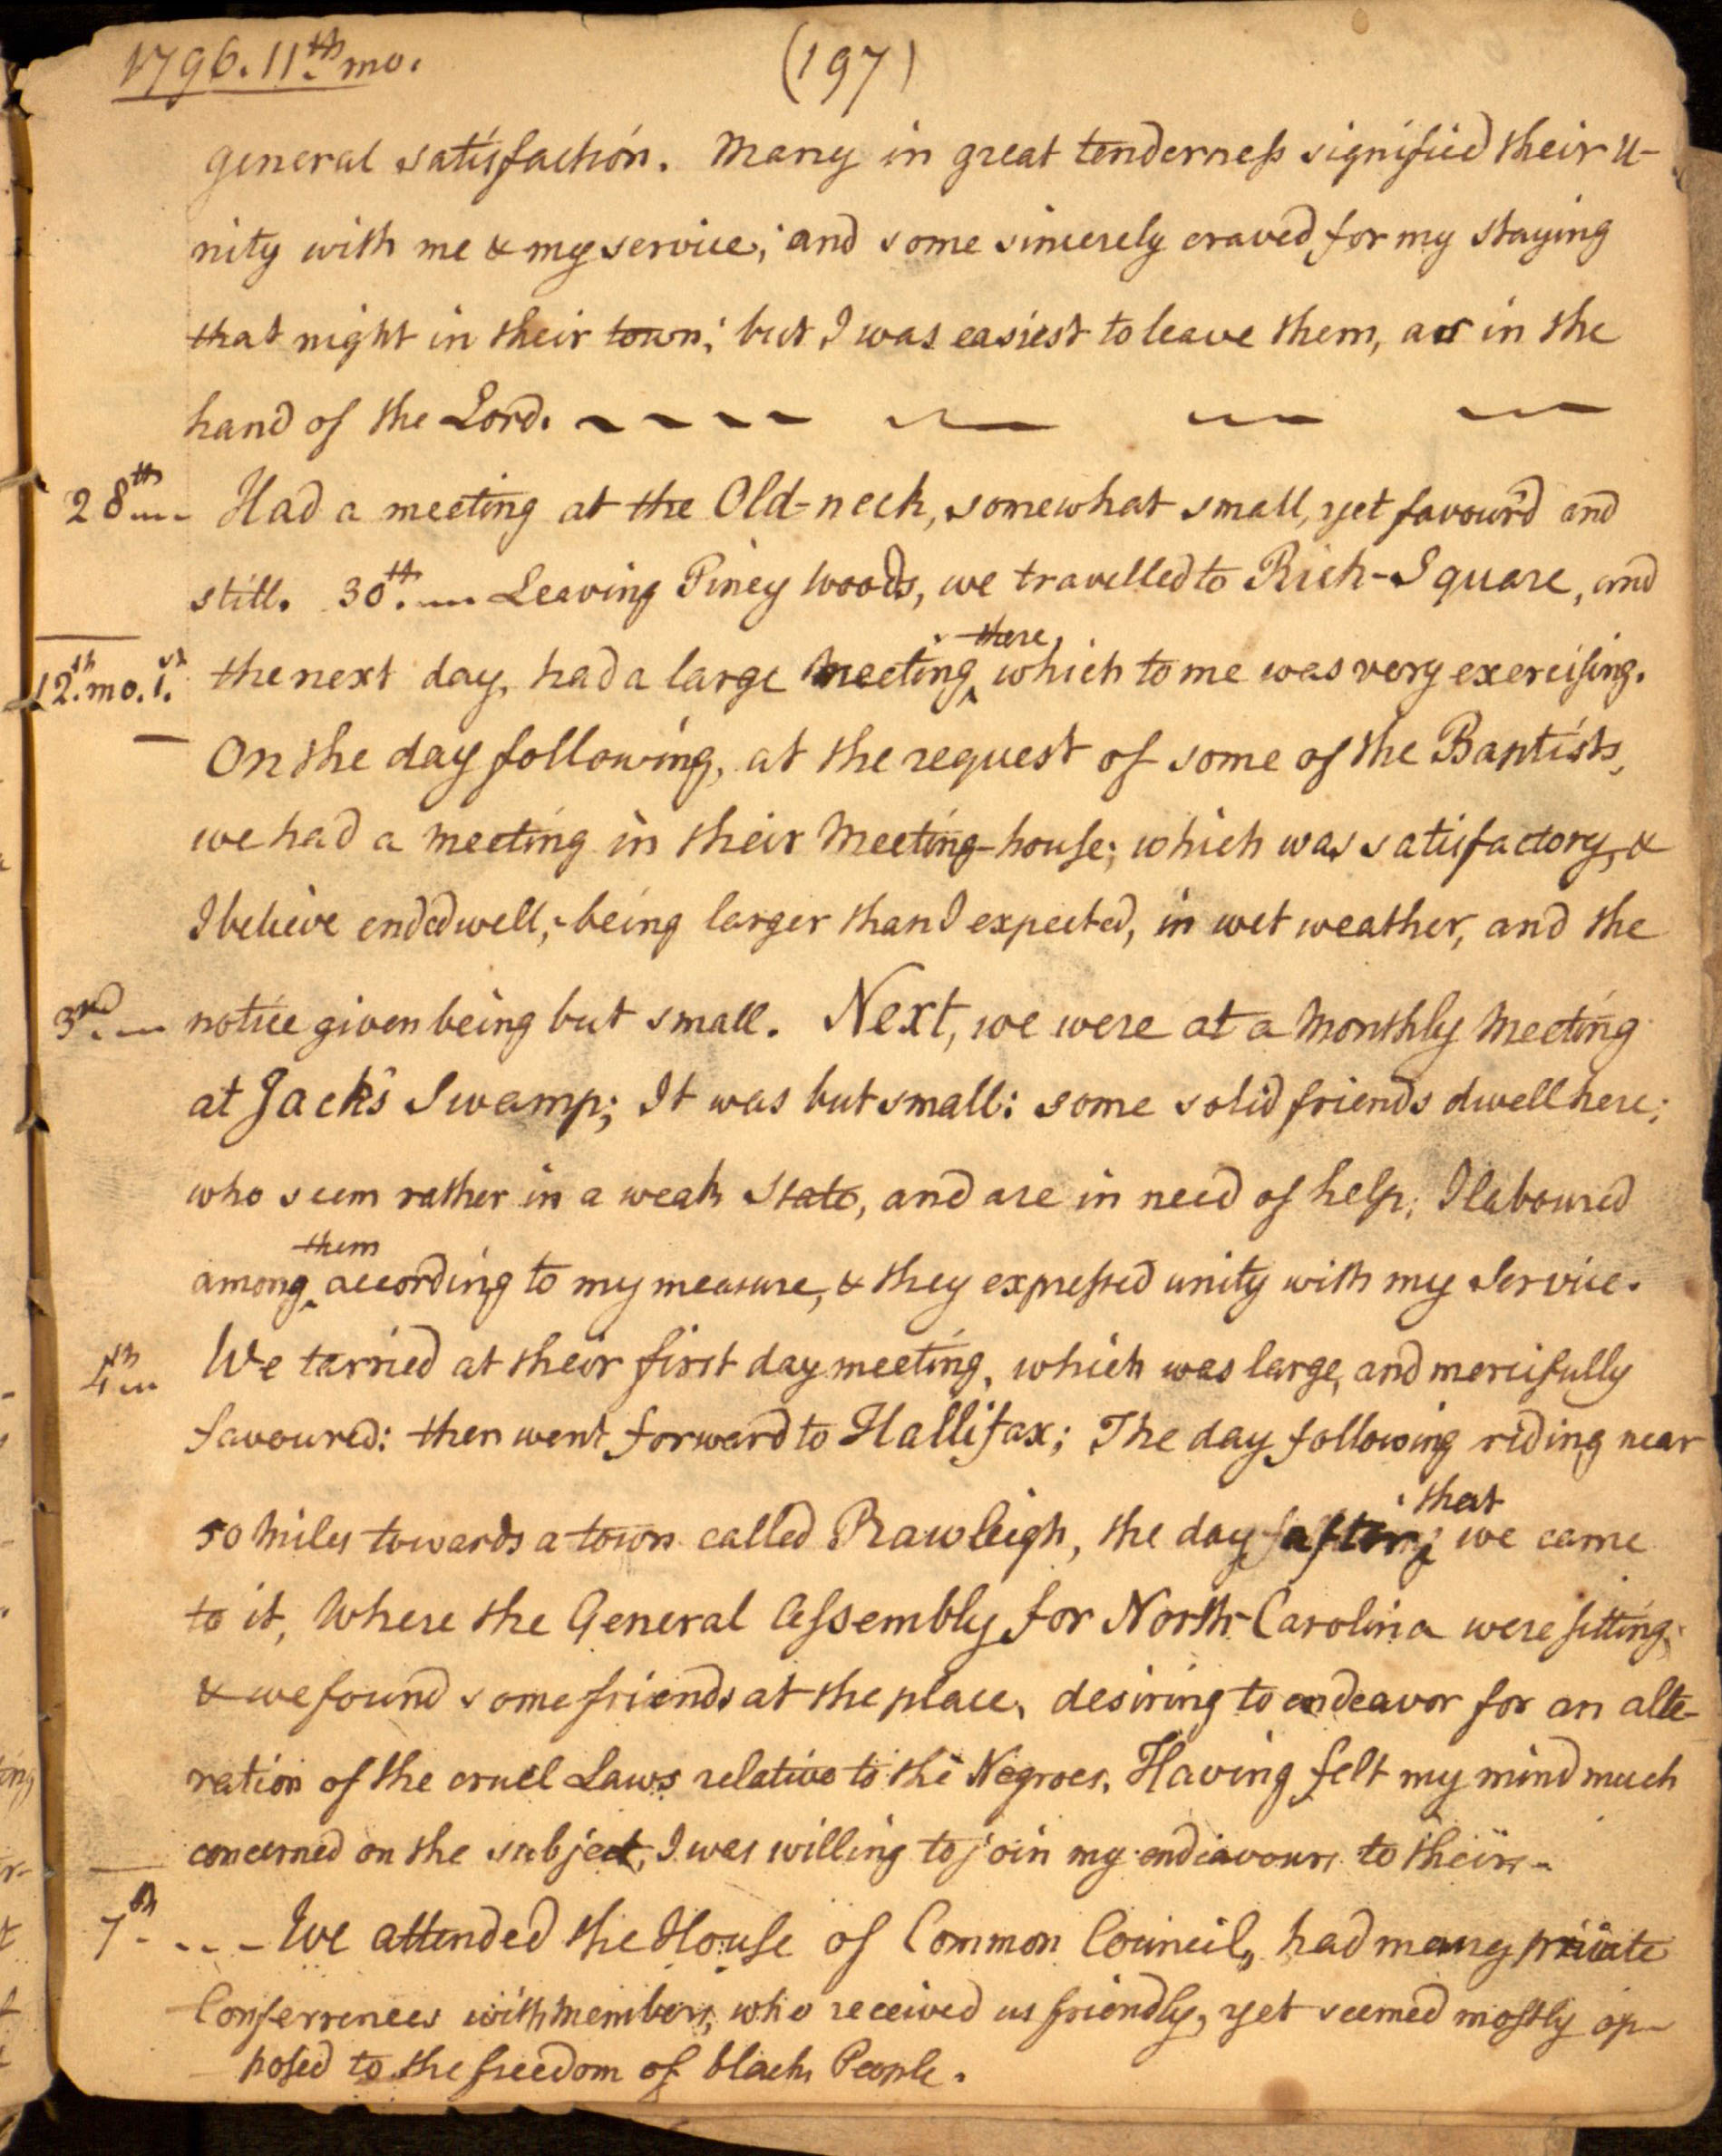 1796. 11th mo.
(197)
general satisfaction. Many in great tenderness signified their u-
nity with me & my service; and some sincerely craved for my staying
that night in their town; but I was easiest to leave them, as in the
hand of the Lord.
28th Had a meeting at the Old-neck, somewhat small, yet favour'd and
still. 30th. Leaving Piney Woods, we travelled to Rich-Square, and
there
12th. mo. 1st. the next day, had a large Meeting, which to me was very exercising.
On the day following, at the request of some of the Baptists,
we had a meeting in their Meeting-house; which was satisfactory, &
I believe ended well; being larger than I expected, in wet weather, and the
3rd. notice given being but small. Next, we were at a Monthly Meeting
at Jack's Swamp; It was but small: some solid friends dwell here;
who seem rather in a weak State, and are in need of help; I laboured
them
among according to my measure, & they expressed unity with my Service.
4th We tarried at their first day meeting, which was large, and mercifully
favoured: then went forward to Hallifax; The day following riding near
that
50 Miles towards a town called Rawleigh, the day after; we came
to it, Where the General Assembly for North-Carolina were sitting,
& we found some friends at the place, desiring to endeavor for an alte-
ration of the cruel Laws relative to the Negroes. Having felt my mind much
concerned on the subject, I was willing to join my endeavours to theirs.-
7th. We attended the House of Common Council, had many private
Conferrences with members, who received us friendly, yet seemed mostly op-
posed to the freedom of black People.